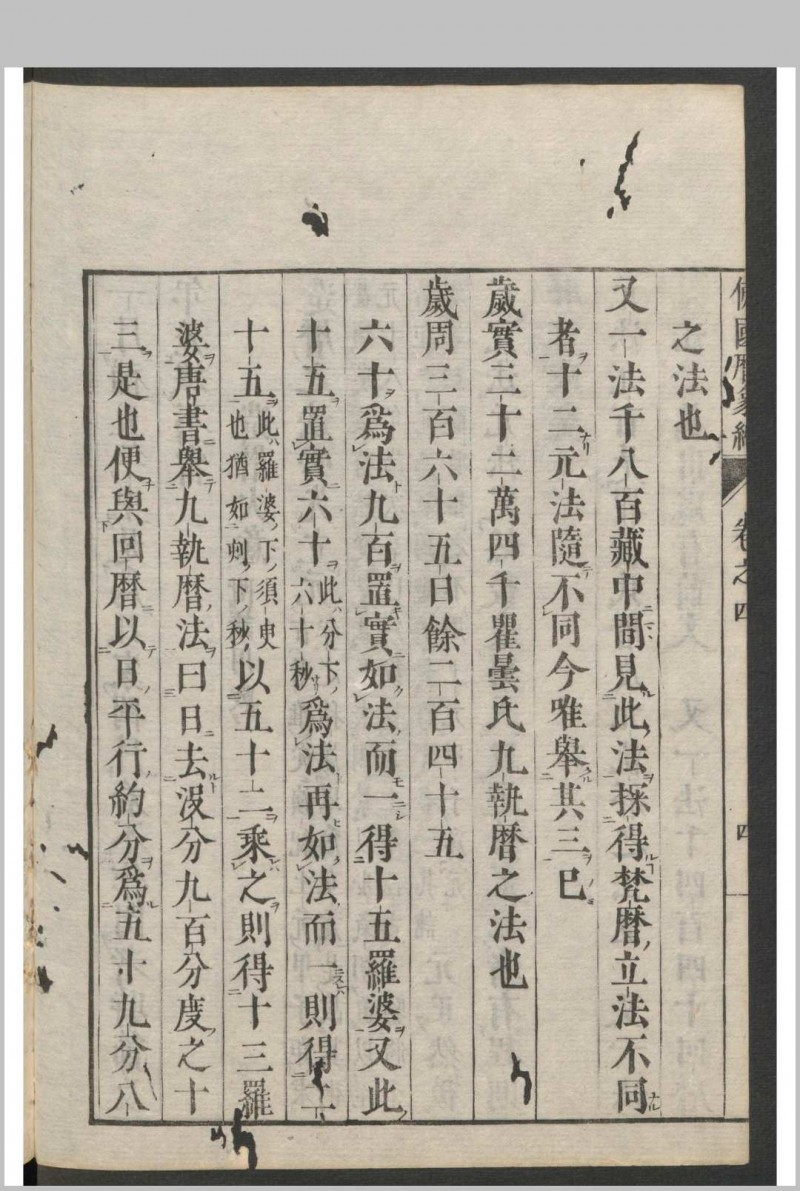 佛國曆象編 卷之四 四
之法也
又一法千八百藏中間見此法採得梵曆立法不同
者十二元法隨不同今唯舉其三已
歲實三十二萬四千瞿曇氏九執曆之法也
歲周三百六十五日餘二百四十五
六十爲法九百置實如法而一得十五羅婆又此
十五置實六十此分下六十秒爲法再如法而一則得二
十五此羅婆下須臾也猶如刻下秒以五十二乘之則得十三羅
婆唐書舉九執曆法曰日去沒分九百分度之十
三是也便與回曆以日平行約分爲五十九分八